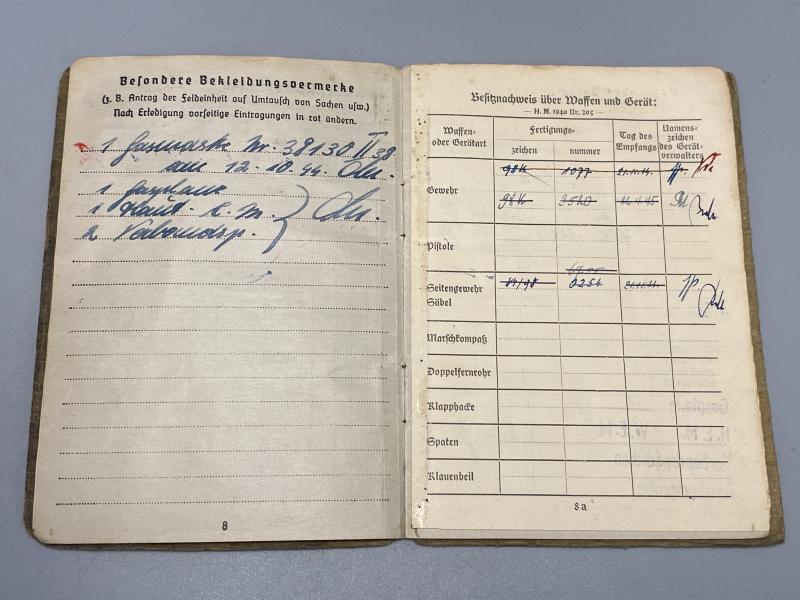 Besondere Bekleidungsvermerke
(z. B. Antrag der Feldeinheit auf Umtausch von Sachen usw.)
Nach Erledigung vorseitige Eintragungen in rot ändern.
1 Gasmaske Nr. 38130 II 38
am 12.10.44.
1 Gasplane
2 Verbandsp.
8
Besitznachweis über Waffen und Gerät:
— H. M. 1940 Nr. 205 —
Waffen- oder Gerätart
Fertigungs-
zeichen
nummer
Tag des Empfangs
Namens-zeichen des Gerät-verwalters
98k 1077 21.11.44.
Gewehr
98k
Pistole
Seitengewehr Säbel
84/98 2254 21.11.44.
Marschkompaß
Doppelfernrohr
Klapphacke
Spaten
Klauenbeil
8a